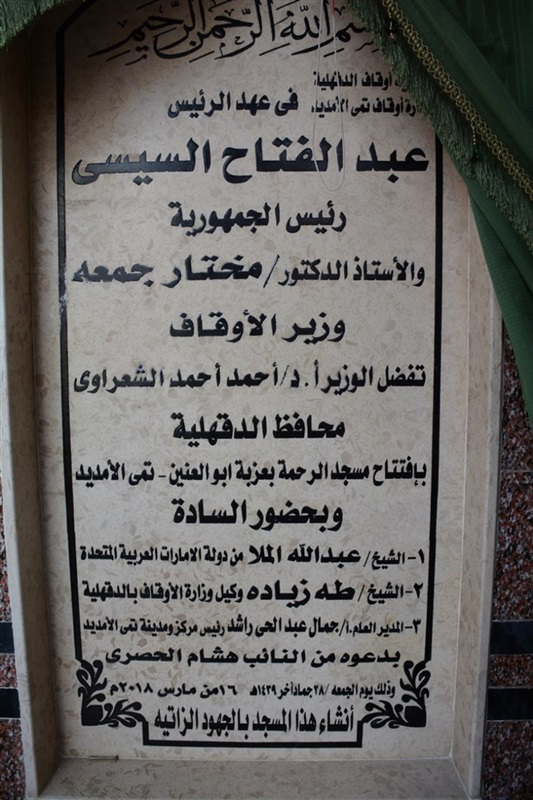 بسم الله الرحمن الرحيم
أوقاف الدقهلية
أوقاف تمى الأمديد
فى عهد الرئيس
عبد الفتاح السيسى
رئيس الجمهورية
والأستاذ الدكتور/ مختار جمعه
وزير الأوقاف
تفضل الوزير أ.د/أحمد أحمد الشعراوى
محافظ الدقهلية
بإفتتاح مسجد الرحمة بعزبة ابو العنين - تمى الأمديد
وبحضور السادة
١- الشيخ/ عبدالله الملا من دولة الامارات العربية المتحدة
٢- الشيخ/ طه زياده وكيل وزارة الأوقاف بالدقهلية
٣- المدير العام.أ/جمال عبد الحى راشد رئيس مركز ومدينة تمى الأمديد
بدعوه من النائب هشام الحصرى
وذلك يوم الجمعه /٢٨ جماد آخر ١٤٣٩هـ ١٦من مارس ٢٠١٨م
أنشاء هذا المسجد بالجهود الزاتيه